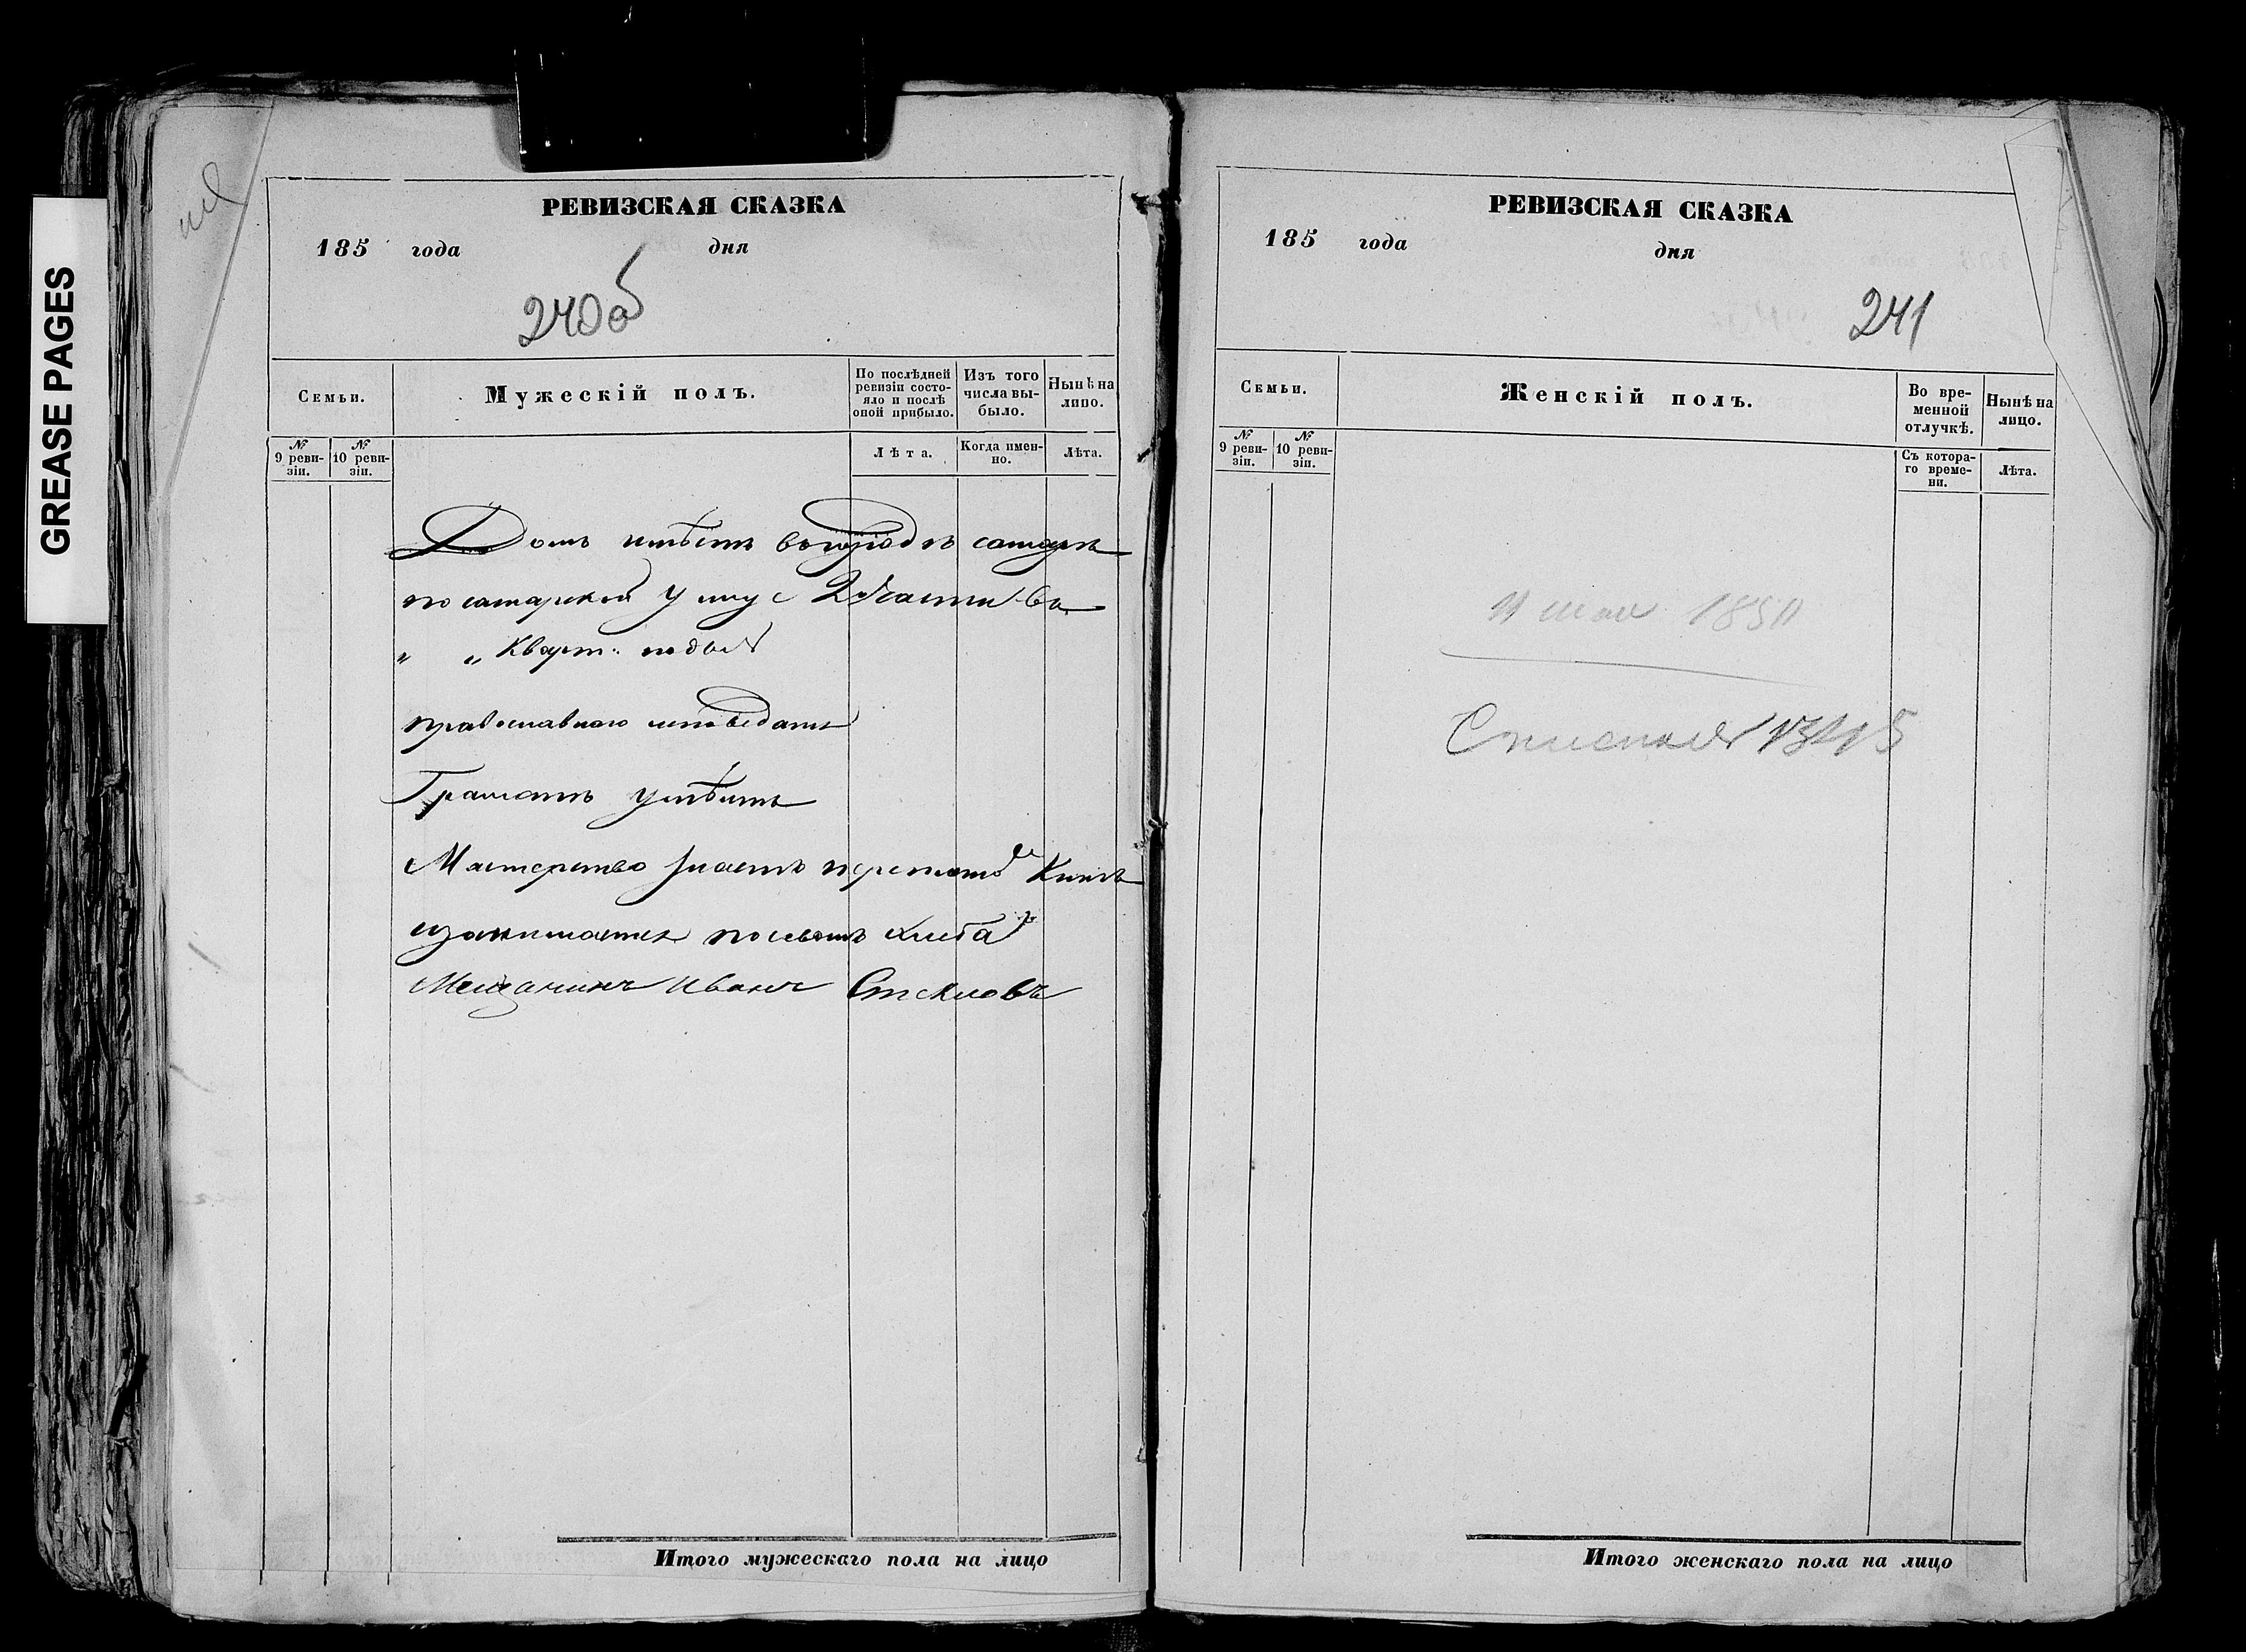 GREASE PAGES
РЕВИЗСКАЯ СКАЗКА
185 года дня
240об
Семьи.
Мужескій полъ.
По послѣдней ревизіи состо-
яло и послѣ оной прибыло.
Изъ того числа вы-
было.
Нынѣ на лицо.
№ 9 реви-
зіи.
№ 10 реви-
зіи.
Лѣта.
Когда имен-
но.
Лѣта.
Домъ имѣетъ въ городѣ самаръ
по самарской улицѣ 2й части въ
„ „ Кварт.
православнаго исповеданія
Грамотѣ умѣетъ
Мастерство знаетъ Книгъ
изанимается посевомъ хлеба
Мещанинъ Иванъ Стекловъ
Итого мужескаго пола на лицо
РЕВИЗСКАЯ СКАЗКА
185 года дня
241
Семьи.
Женскій полъ.
Во вре-
менной
отлучкѣ.
Нынѣ на
лицо.
№ 9 реви-
зіи.
№ 10 реви-
зіи.
Съ котора-
го време-
ни.
Лѣта.
мая
Итого женскаго пола на лицо